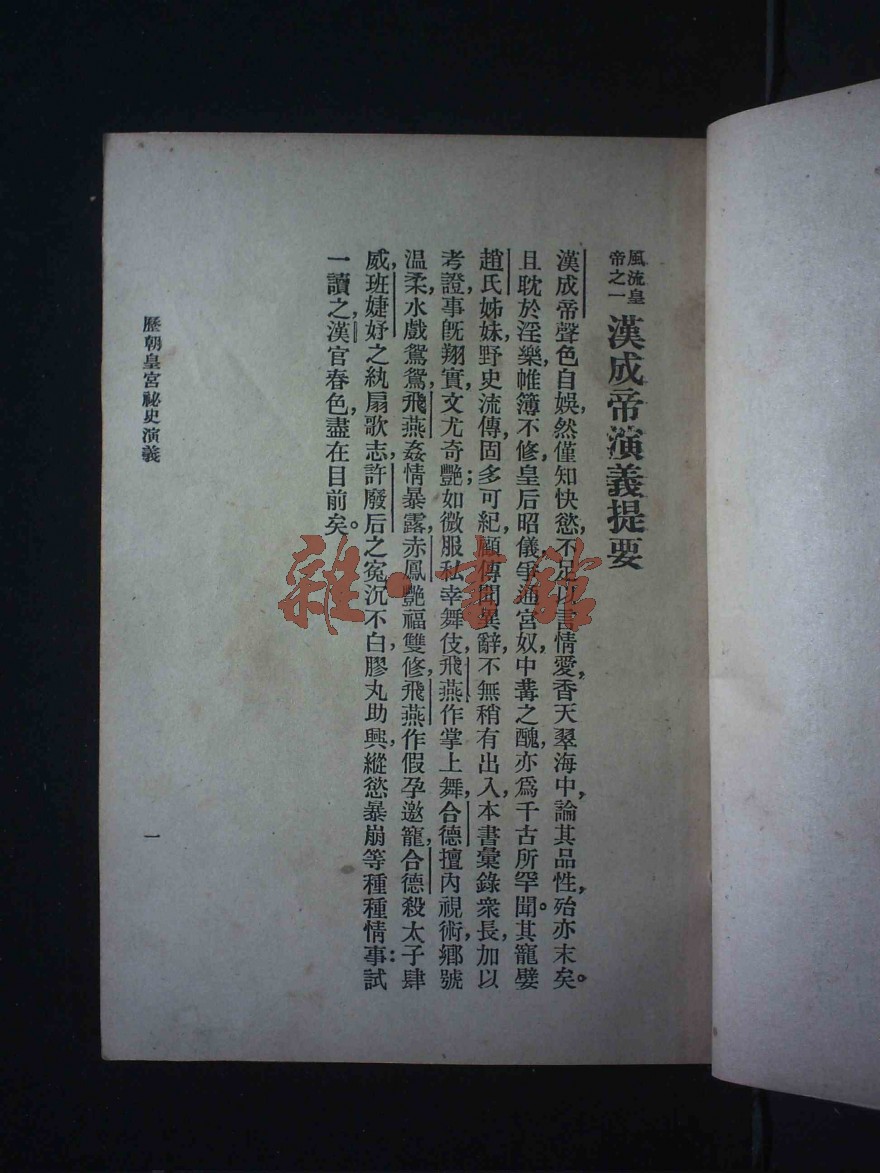 風流皇
帝之一
漢成帝演義提要
漢成帝聲色自娛，然僅知快慾，不足以言情愛，香天翠海中，論其品性，殆亦末矣。
且耽於淫樂，帷簿不修，皇后昭儀，爭通宮奴，中冓之醜，亦爲千古所罕聞。其寵嬖
趙氏姊妹，野史流傳，固多可紀，顧傳聞異辭，不無稍有出入，本書彙錄衆長，加以
考證，事旣翔實，文尤奇艷；如微服私幸舞伎，飛燕作掌上舞，合德擅內視術，鄉號
温柔，水戲鴛鴦，飛燕姦情暴露，赤鳳艷福雙修，飛燕作假孕邀寵，合德殺太子肆
威，班婕妤之紈扇歌志，許廢后之寃沉不白，膠丸助興，縱慾暴崩等種種情事：試
一讀之，漢官春色，盡在目前矣。
歷朝皇宮祕史演義
一
雜·書館